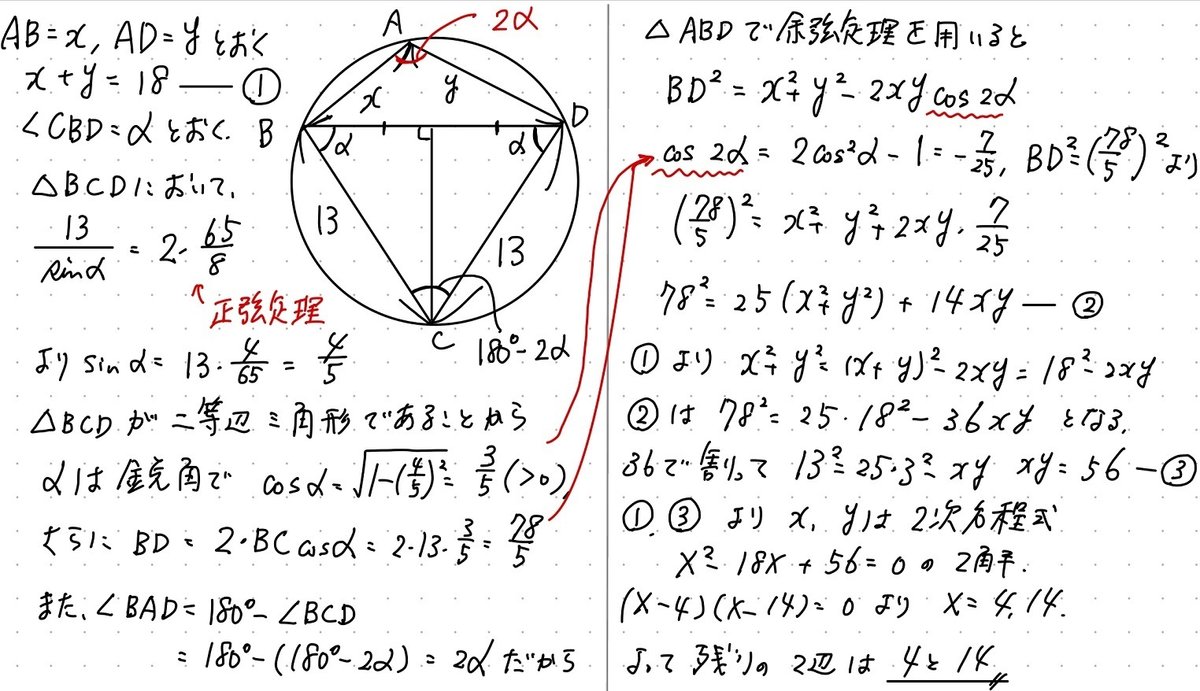 AB=x, AD=y とおく
x+y=18 ― ①
∠CBD=α とおく.
△BCDにおいて、
13/sinα = 2・65/8
↑正弦定理
より sinα = 13・4/65 = 4/5
△BCDが二等辺三角形であることから
αは鋭角で cosα=√(1-(4/5)²) = 3/5 (>0),
さらに BD = 2・BC cosα = 2・13・3/5 = 78/5
また、∠BAD=180°-∠BCD
=180°-(180°-2α) = 2α だから
A
2α
x
y
B
D
α
α
13
13
C
180°-2α
△ABDで余弦定理を用いると
BD² = x²+y²-2xy cos2α
cos 2α = 2cos²α-1 = -7/25, BD²=(78/5)² より
(78/5)² = x²+y²+2xy・7/25
78² = 25(x²+y²)+14xy ― ②
①より x²+y²=(x+y)²-2xy=18²-2xy
②は 78²=25・18²-36xy となる.
36で割って 13²=25・3²-xy xy=56 ―③
①,③ より x, yは 2次方程式
X²-18X+56=0 の 2解.
(X-4)(X-14)=0 より X=4,14.
よって 残りの2辺は 4と14